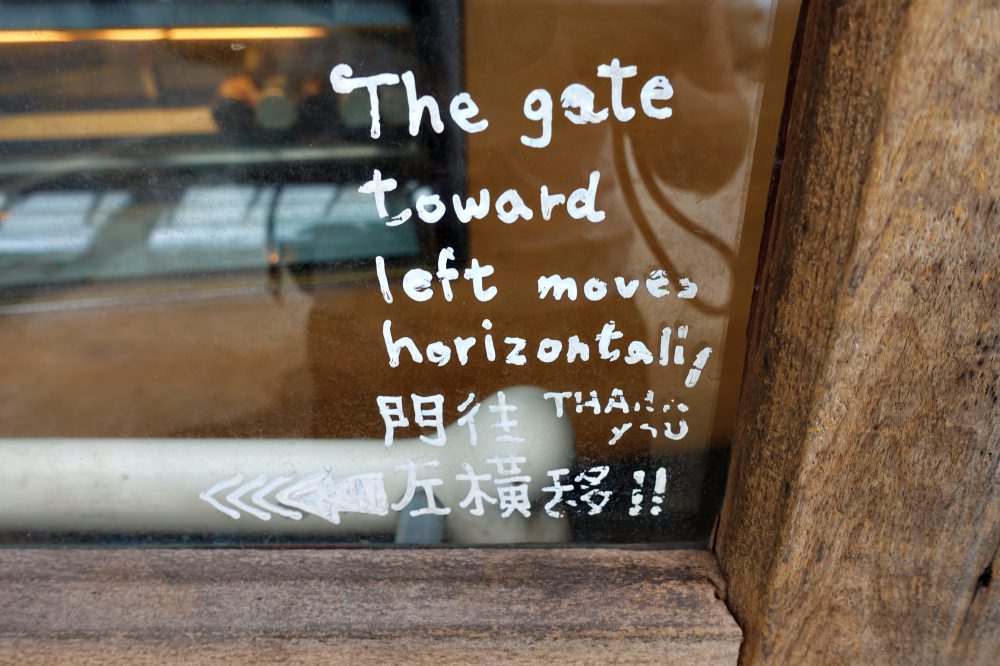 The gate
toward
left moves
horizontally
門往 THANK
you
左橫移!!